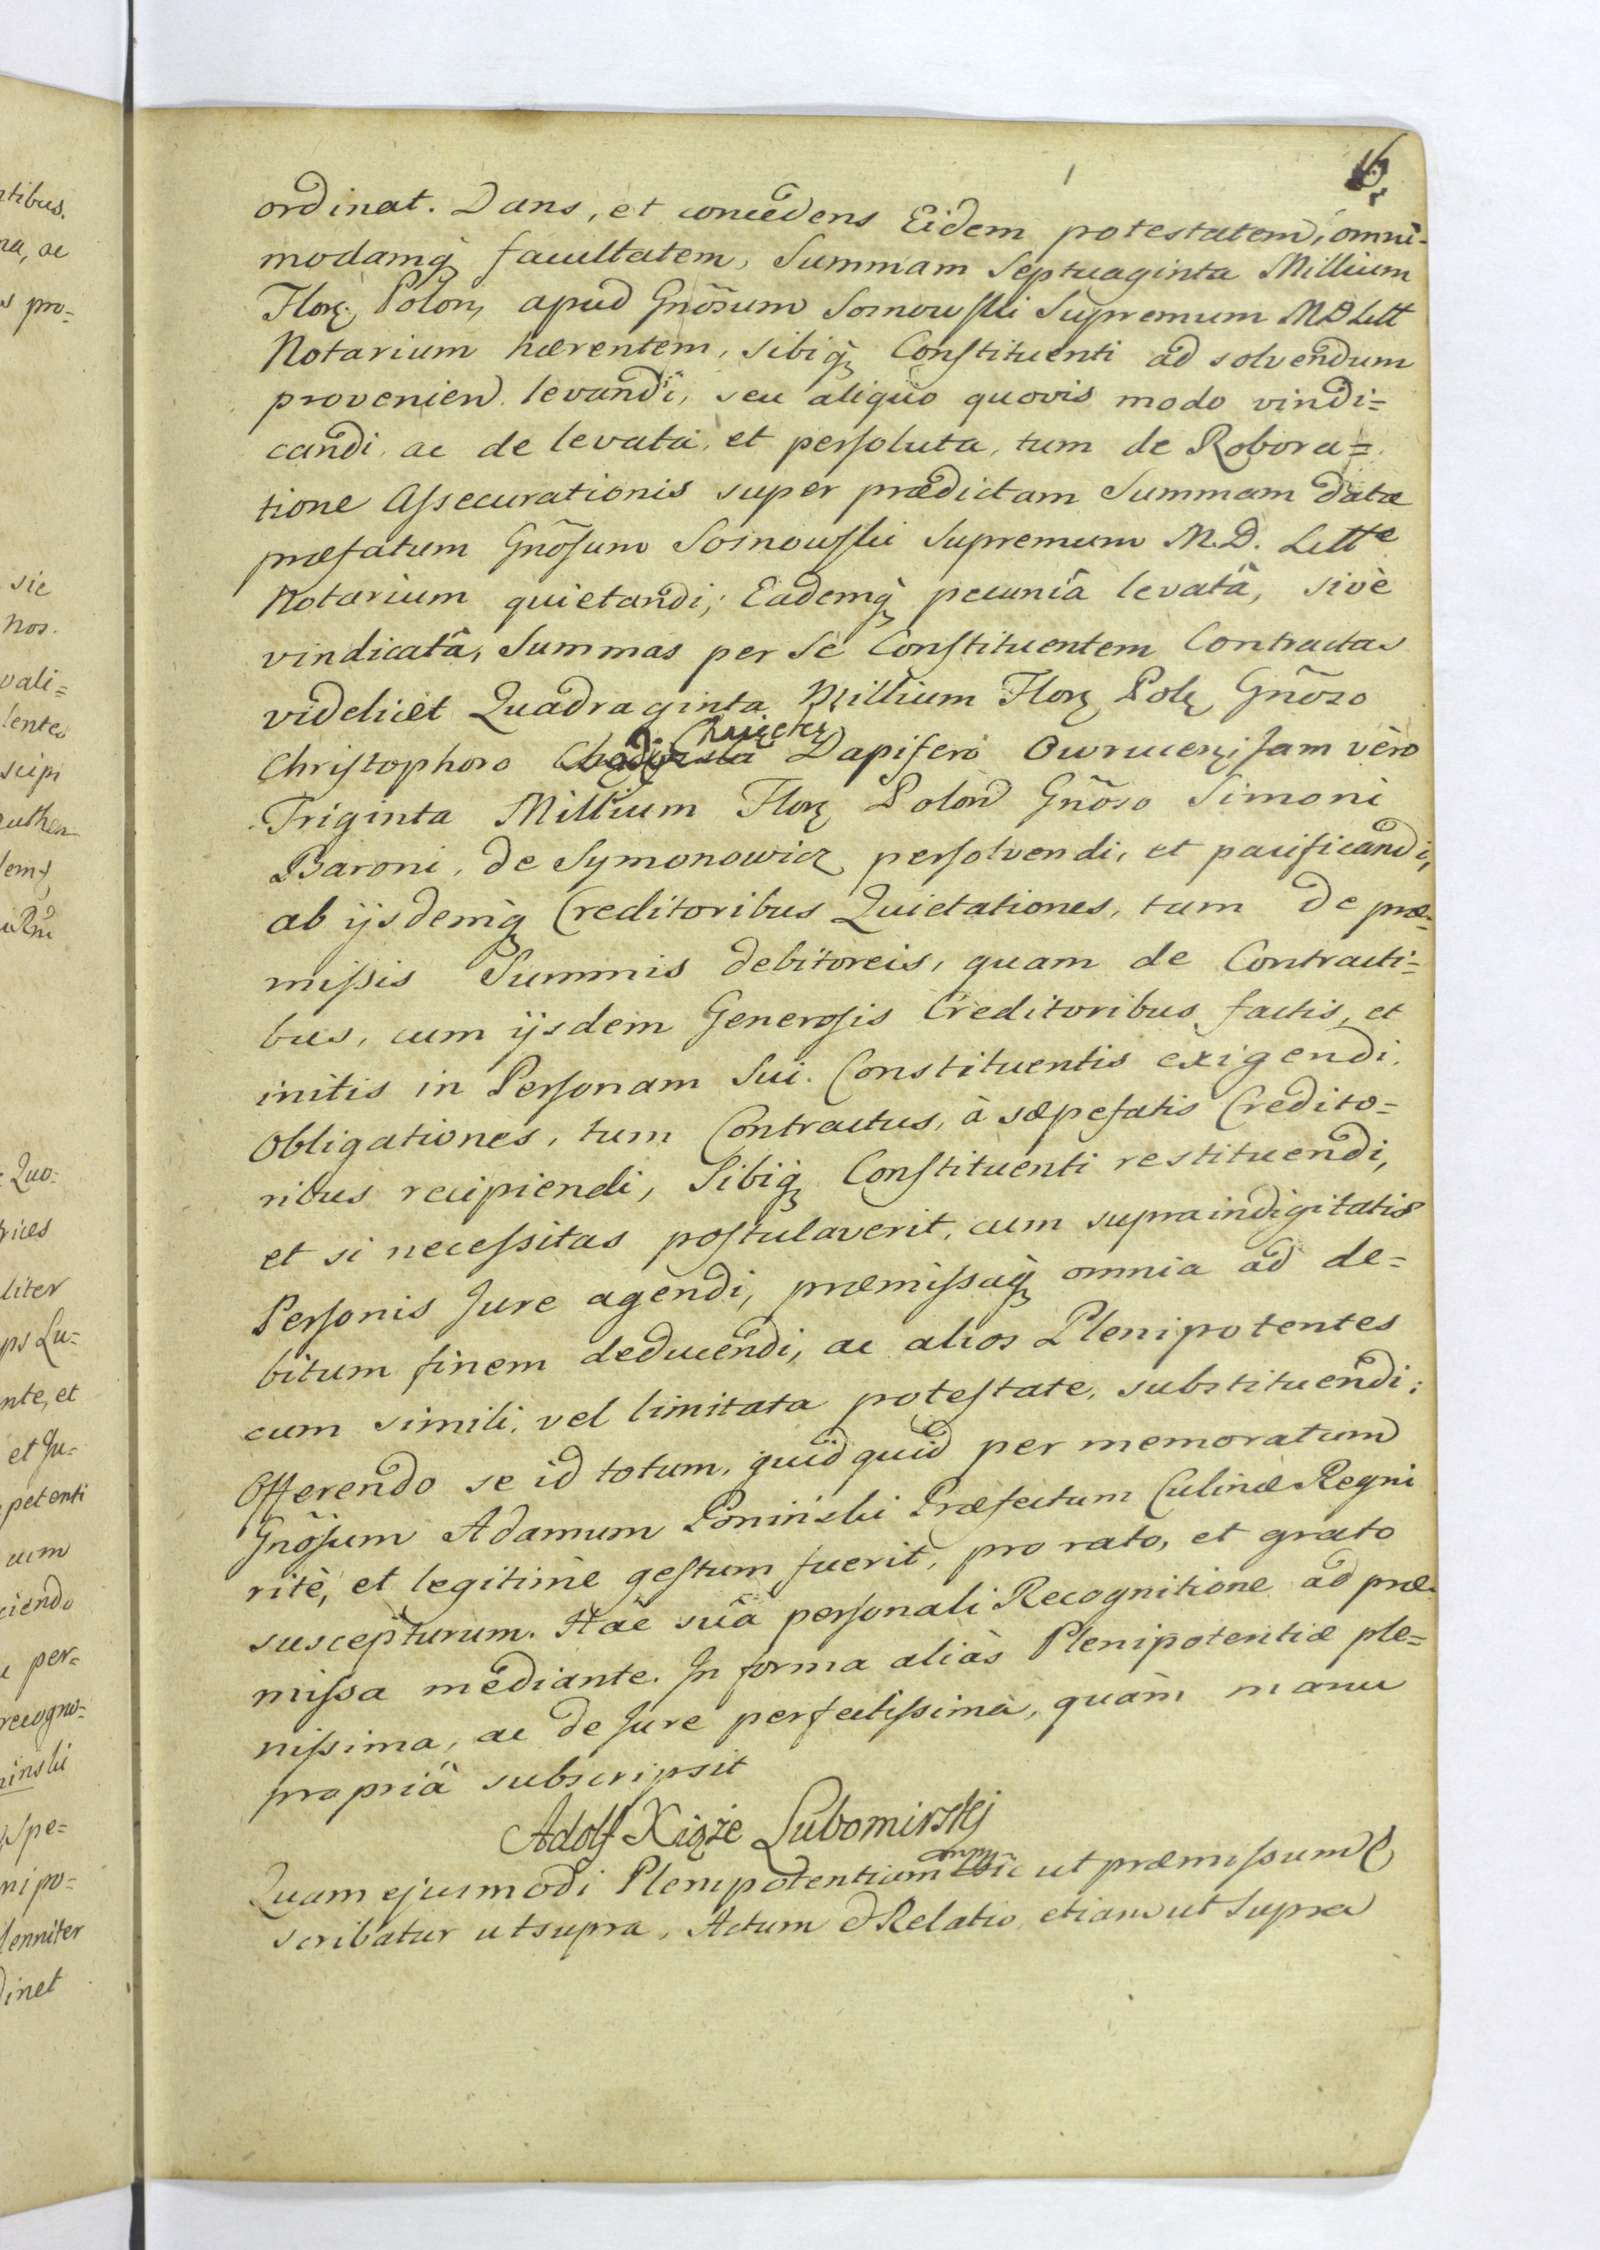 ordinat. Dans, et concedens Eidem potestatem, omni-
modamq̃ facultatem, Summam Septuaginta Millium
Flor. Polon, apud Gnõsum Sosnowski Supremum MD Litt
Notarium hærentem, sibiq̃ Constituenti ad solvendum
provenien. levandi, seu aliquo quovis modo vindi=
candi, ac de levata, et persoluta, tum de Robora=
tione Assecurationis super prædictam Summam datæ
præfatum Gnõsum Sosnowski Supremum M.D. Littæ
Notarium quietandi; Eademq̃ pecuniâ levatâ, sivè
vindicatâ, Summas per Se Constituentem Contractas
videlicèt Quadraginta Millium Flor Pol Gnõso
Christophoro Dapifero Owrucen, Jam vèro
Triginta Millium Flor Polon Gnõso Simoni
Baroni, de Symonowicz persolvendi, et pacificandi,
ab ijsdemq̃ Creditoribus Quietationes, tam de præ=
missis Summis debitoreis, quam de Contracti=
bus, cum ijsdem Generosis Creditoribus factis, et
initis in Personam Sui Constituentis exigendi.
Obligationes, tum Contractus, à sæpefatis Credito=
ribus recipiendi, Sibiq̃ Constituenti restituendi,
et si necessitas postulaverit, cum supraindigitatis
Personis Jure agendi, præmissaq̃ omnia ad de=
bitum finem deducendi, ac alios Plenipotentes
cum simili, vel limitata potestate, substituendi;
Offerendo se id totum, quidquid per memoratum
Gnõsum Adamum Poniński Præfectum Culinæ Regni
ritè, et legitimè gestum fuerit, pro rato, et grato
suscepturum. Hac suâ personali Recognitione ad præ-
missa mediante. In forma aliàs Plenipotentiæ ple=
nissima, ac de Jure perfectissima, quàm manu
propriâ subscripsit
Adolf Xiąże Lubomirskj
mpp
Quam ejusmodi Plenipotentiam sic ut præmissum e
scribatur ut supra, Actum & Relatio etiam ut supra